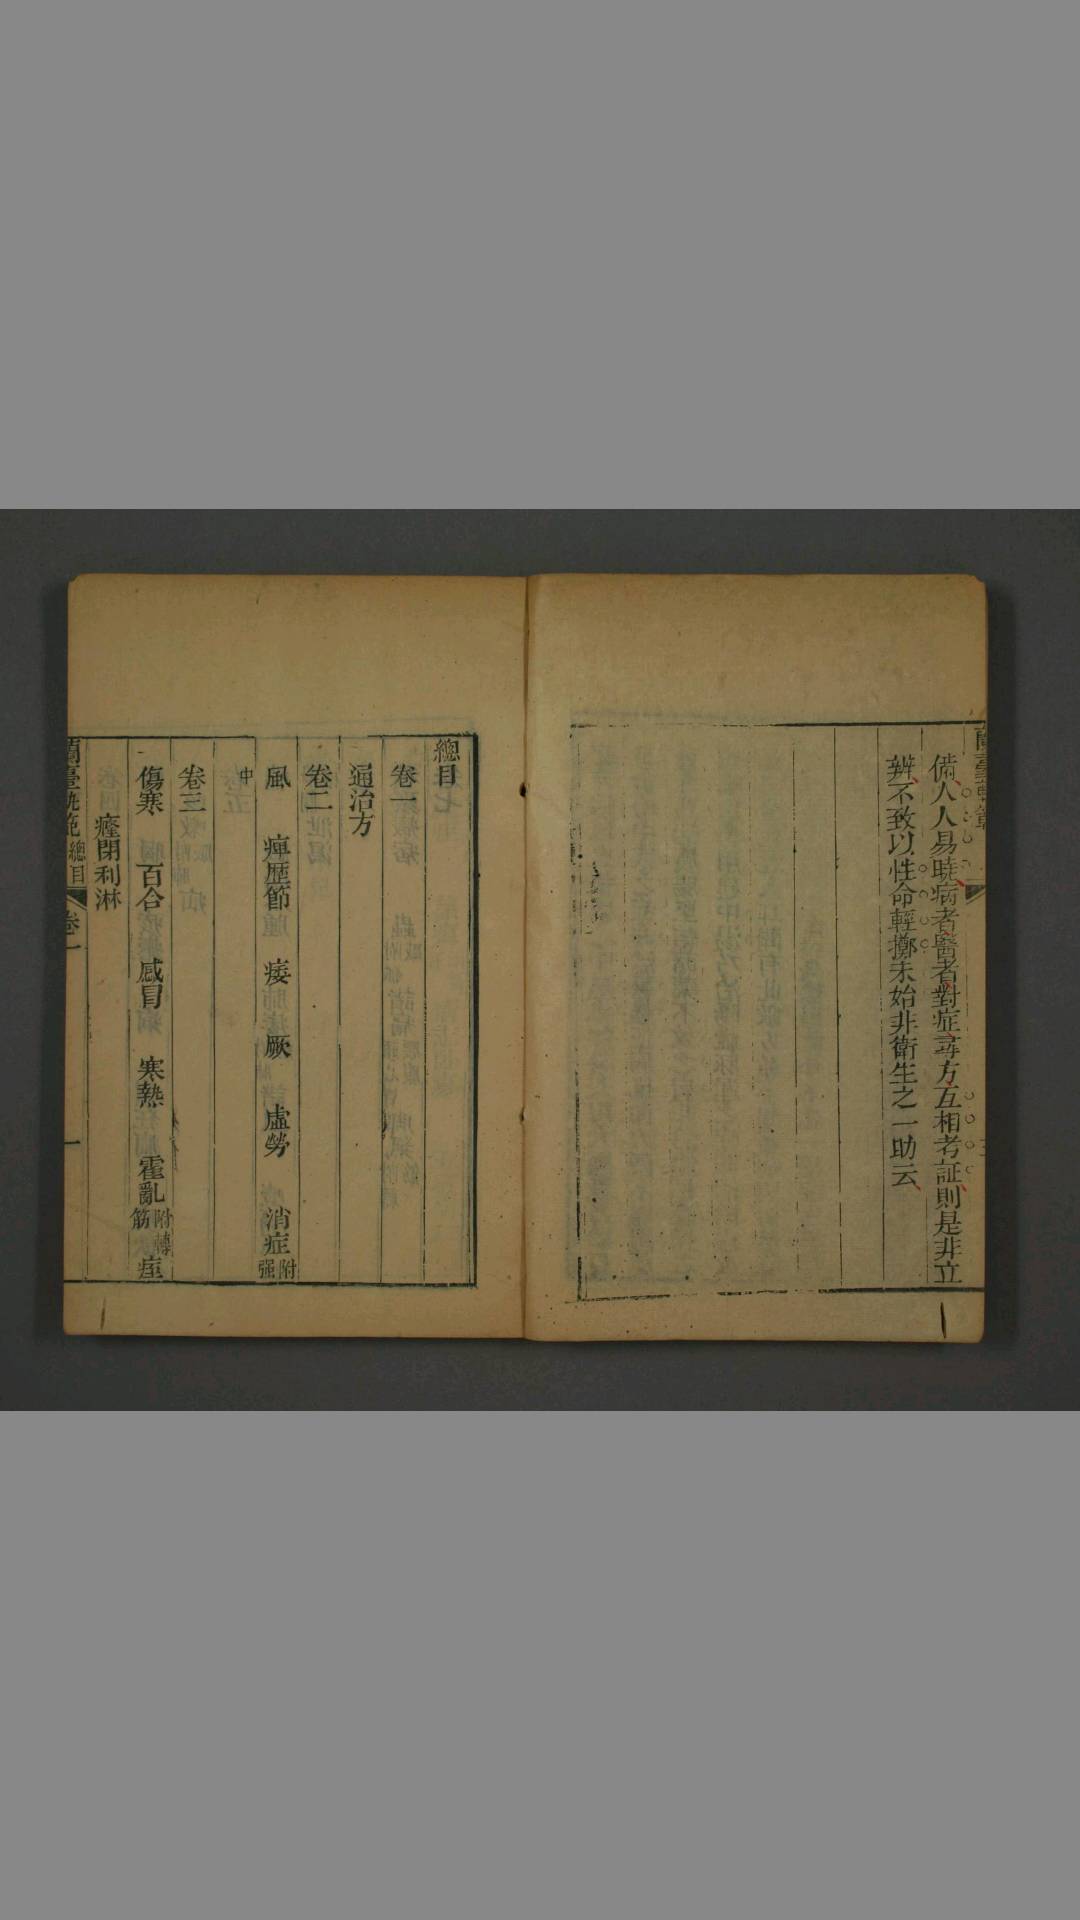 備人人易曉病者醫者對症尋方互相考証則是非立
辨不致以性命輕擲未始非衛生之一助云
總目
卷一
通治方
卷二
風 痺歷節 痿 厥 虛勞 消症附强
中
卷三
傷寒 百合 感冒 寒熱 霍亂附轉筋 痙
癃閉利淋
蘭臺軌範 總目 卷一 一